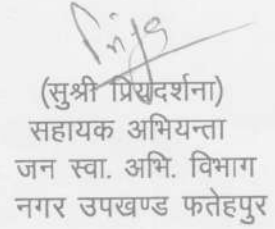 (सुश्री प्रियदर्शना)
सहायक अभियन्ता
जन स्वा. अभि. विभाग
नगर उपखण्ड फतेहपुर